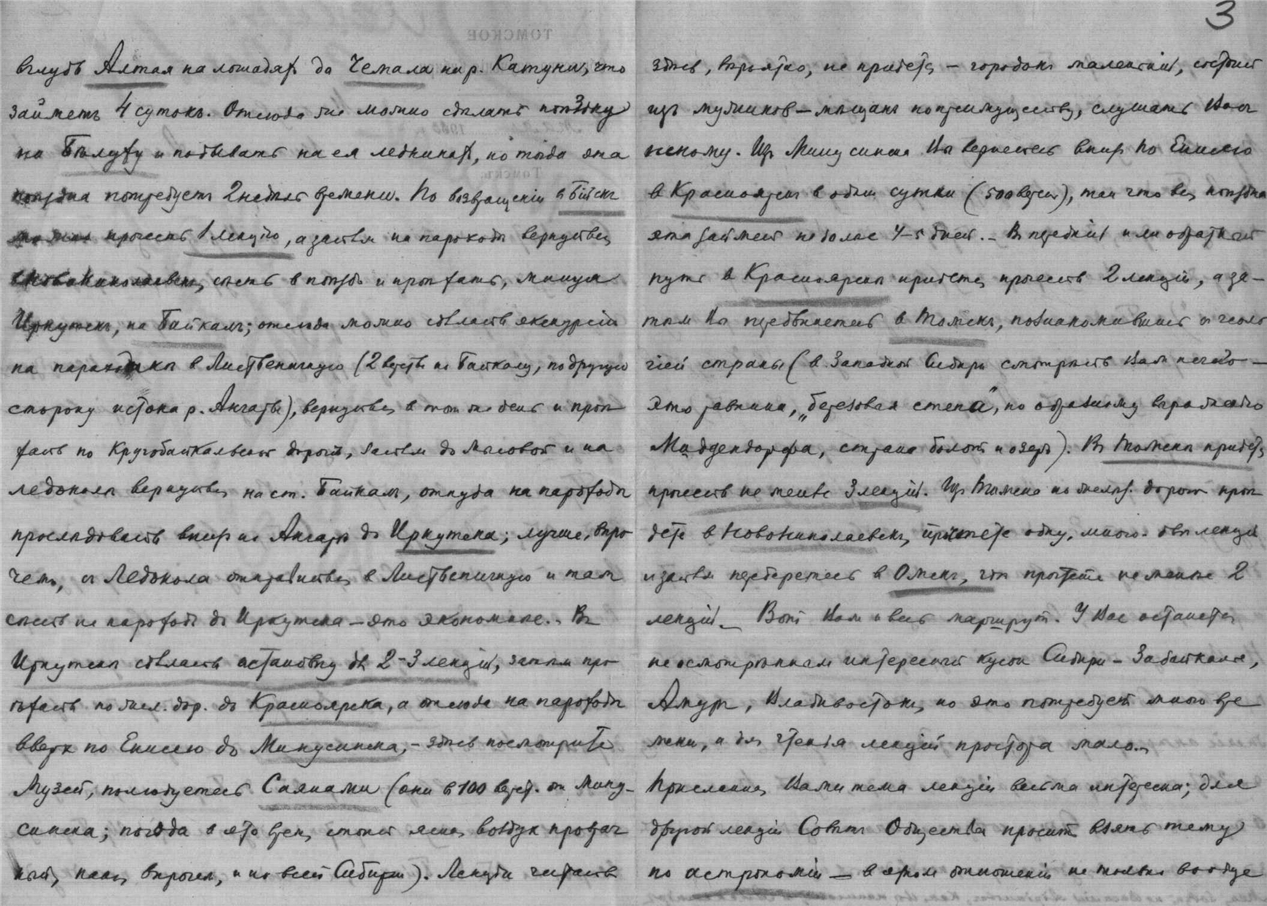 вглубь Алтая на лошадях до Чемала на р. Катуни, что
займетъ 4 сутокъ. Отсюда же можно сдѣлать поѣздку
на Бѣлуху и побывать на ея ледникахъ, но тогда эта
поѣздка потребуетъ 2 недѣли времени. По возвращеніи в Бійскъ
прочесть 1 лекцію, а затѣм на пароходѣ вернуться
в Новониколаевскъ, сѣсть в поѣздъ и проѣхать, минуя
Иркутскъ, на Байкалъ; отсюда можно сдѣлать экскурсію
на пароходикѣ в Лиственичную (2 версты по Байкалу, по другую
сторону истока р. Ангары), вернуться в тот же день и проѣ-
хать по Кругобайкальской дорогѣ, затѣм до Мысовой и на
ледоколѣ вернуться на ст. Байкалъ, откуда на пароходѣ
прослѣдовать вниз по Ангарѣ до Иркутска; лучше, впро-
чем, с Ледокола отправиться в Лиственичную и там
сѣсть на пароходъ до Иркутска – это экономнѣе. Въ
Иркутскѣ сдѣлать остановку для 2-3 лекцій, затѣм про-
ѣхать по жел. дор. до Красноярска, а отсюда на пароходѣ
вверх по Енисею до Минусинска, – здѣсь посмотрите
Музей, полюбуетесь Саянами (они в 100 верст. от Мину-
синска; погода в это время стоит ясная, воздух прозрач-
ный, как, впрочем, и по всей Сибири). Лекціи читать
3
ТОМСКОЕ
здѣсь, вѣроятно, не придется – городокъ маленькій, состоит
изъ мѣщанъ по преимуществу, слушать Васъ
некому. Из Минусинска Вы вернетесь вниз по Енисею
в Красноярскъ в одни сутки (500 верст), так что вся поѣздка
эта займет не болѣе 4-5 дней. – В передній или обратный
путь в Красноярскѣ придется прочесть 2 лекціи, а за-
тѣм Вы передвигаетесь в Томскъ, познакомившись с геоло-
гіей страны (в Западной Сибири смотрѣть Вам нечего –
это равнина, „березовая степь“, по образному выраженію
Миддендорфа, страна болотъ и озеръ). В Томскѣ придется
прочесть не менѣе 3 лекцій. Из Томска по желѣз. дорогѣ проѣ-
дете в Новониколаевскъ, прочтете одну, много двѣ лекціи
и затѣм переберетесь в Омскъ, гдѣ прочтете не менѣе 2
лекцій. Вот Вам и весь маршрут. У Вас останется
не осмотрѣнным интересный кусок Сибири – Забайкалье,
Амуръ, Владивостокъ, но это потребует много вре-
мени, а для чтенія лекцій простора мало.
Присланная Вами тема лекцій весьма интересна; для
другой лекціи Совѣт Общества просит взять тему
по астрономіи – в этом отношеніи не только вообще